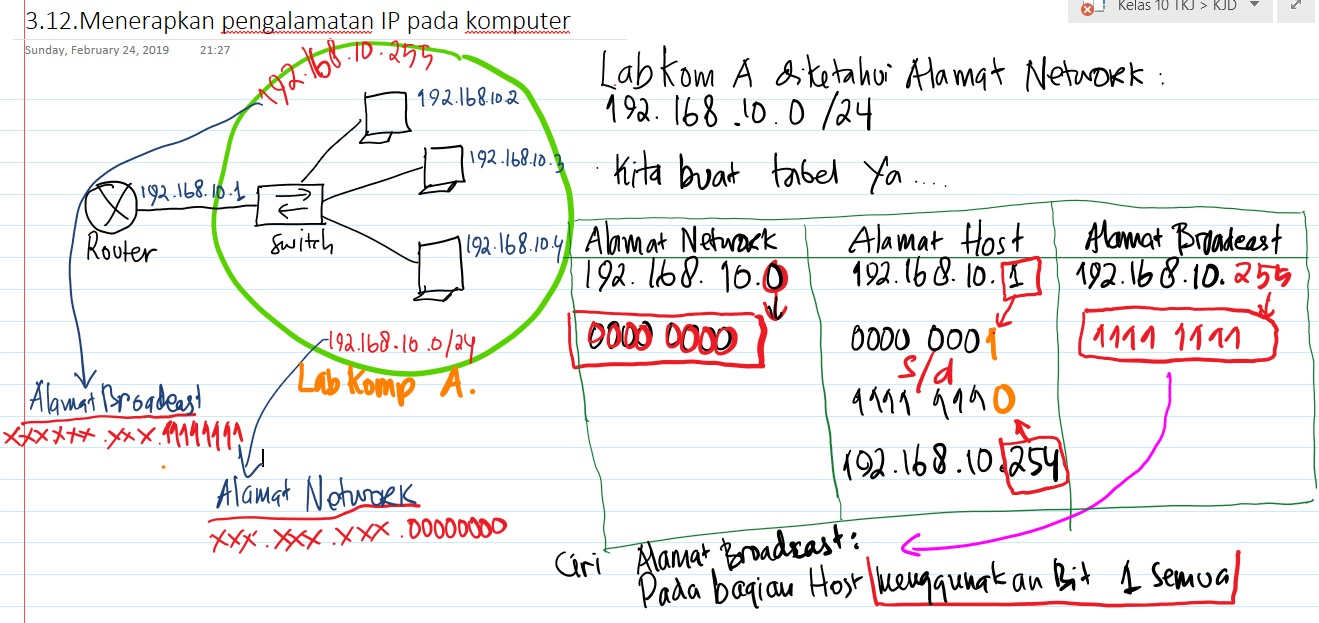 3.12.Menerapkan pengalamatan IP pada komputer
Kelas 10 TKJ > KJD
Sunday, February 24, 2019 21:27
192.168.10.255
192.168.10.2
192.168.10.3
192.168.10.1
192.168.10.4
Router
Switch
192.168.10.0/24
Lab Komp A.
Alamat Broadcast
xxxxxx.xxx.11111111
Alamat Network
xxx.xxx.xxx.00000000
Lab Kom A diketahui Alamat Network :
192.168.10.0 /24
Kita buat tabel Ya ....
Alamat Network Alamat Host Alamat Broadcast
192.168.10.0 192.168.10.1 192.168.10.255
0000 0000 0000 0001 1111 1111
s/d
1111 1110
192.168.10.254
Ciri Alamat Broadcast:
Pada bagian Host menggunakan Bit 1 semua